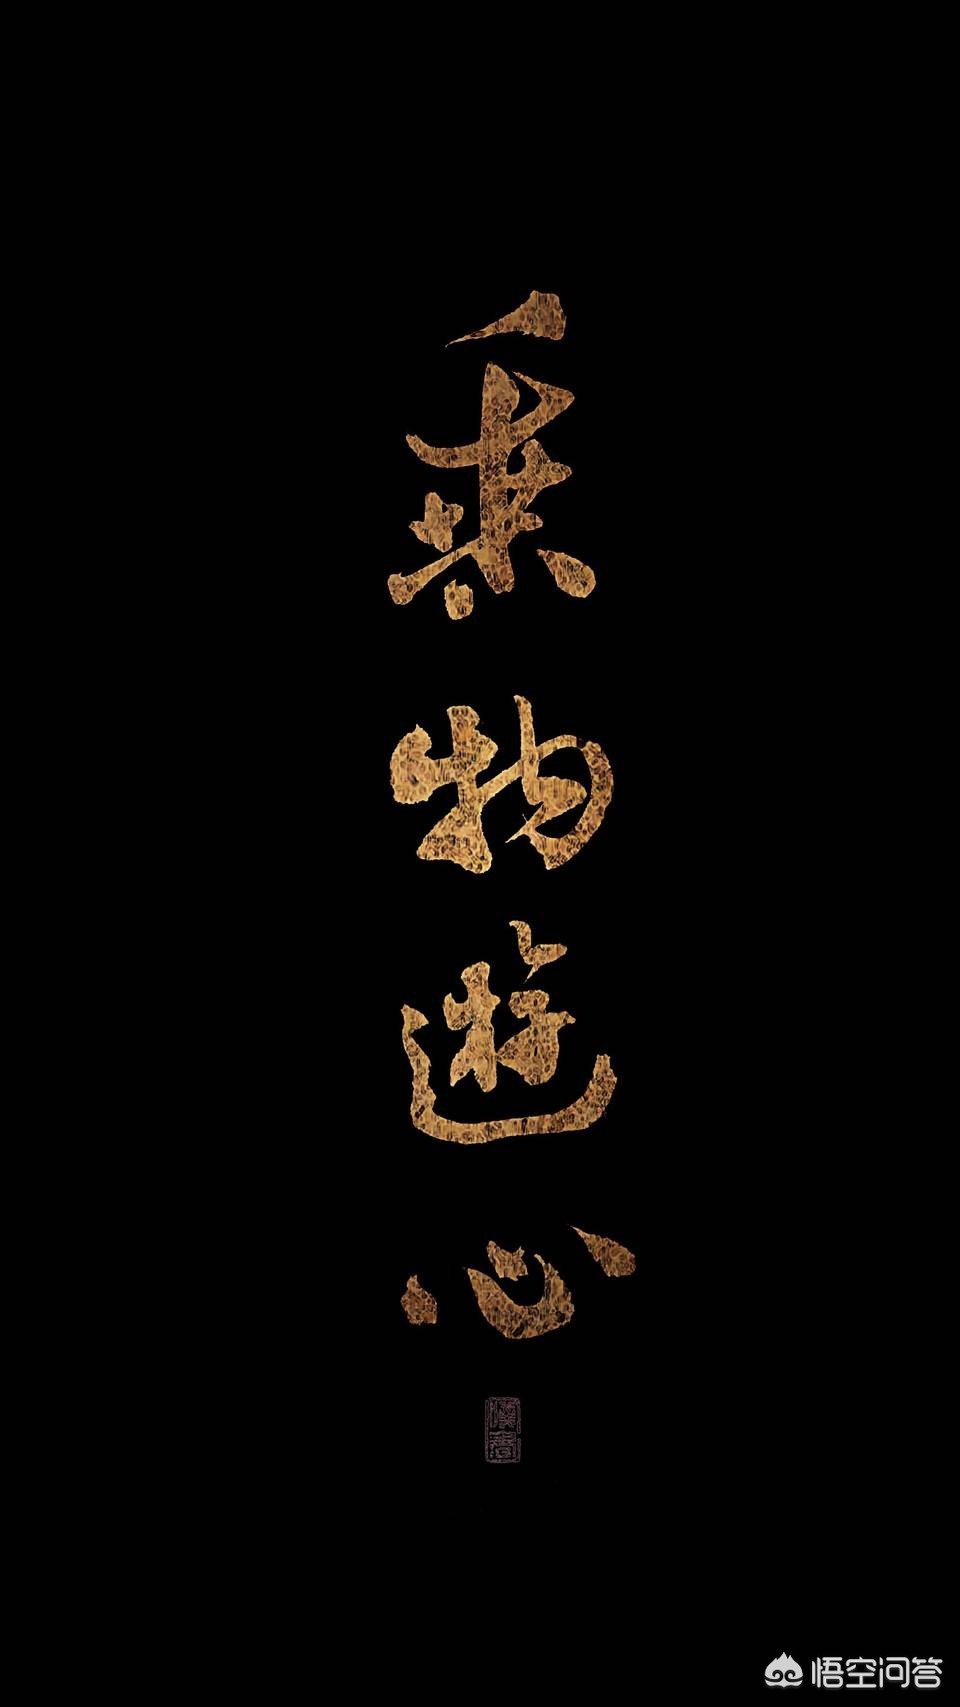 乘物遊心
悟空问答